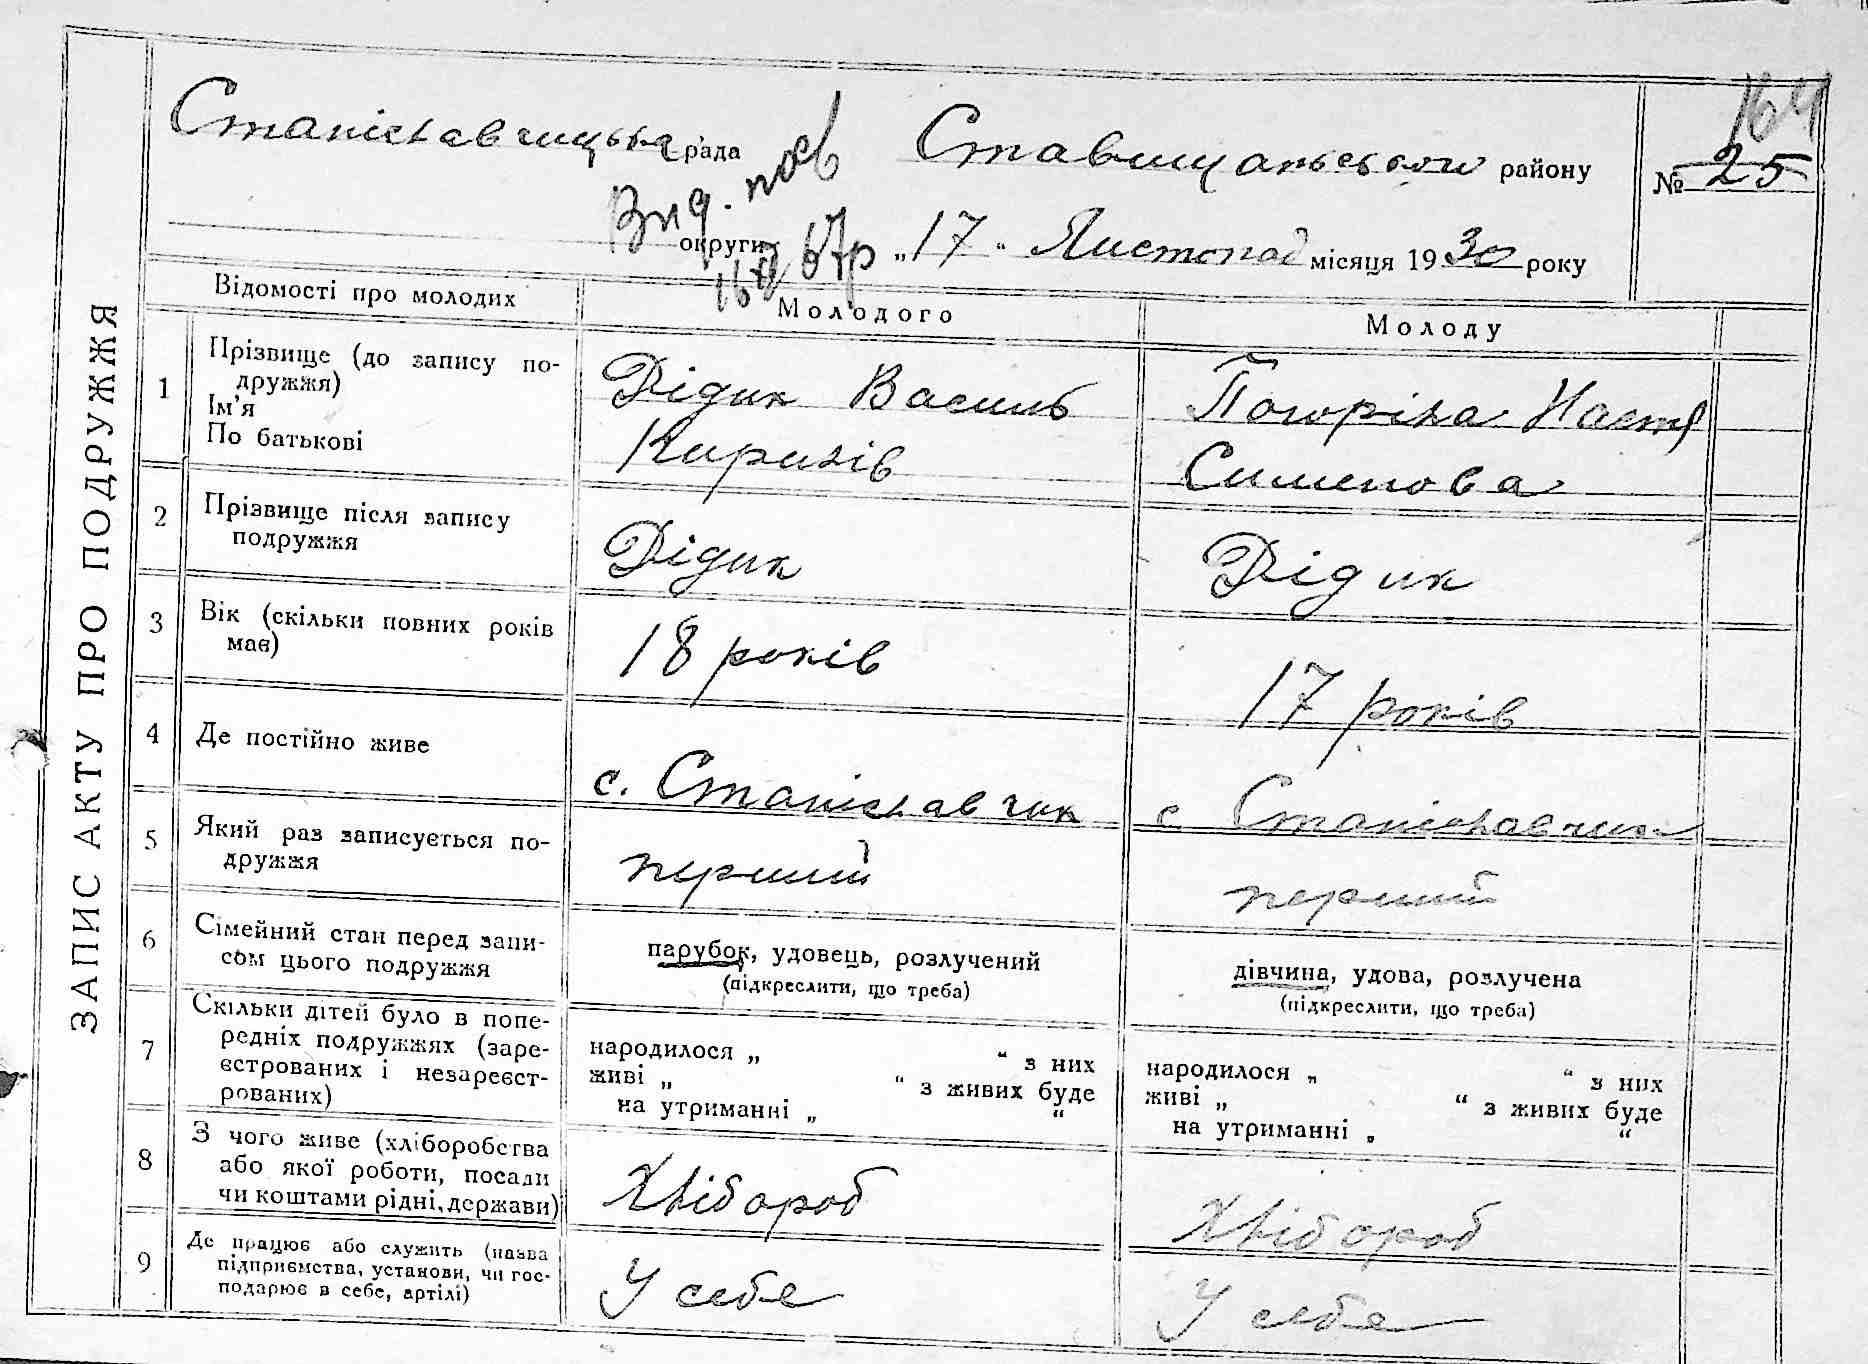 164
Станіславчицька рада Ставищанського району № 25
Вид. пос
округи 16 67р „17“ Листопад місяця 1930 року
ЗАПИС АКТУ ПРО ПОДРУЖЖЯ
Відомості про молодих Молодого Молоду
1 Прізвище (до запису по-
дружжя)
Ім’я
По батькові
Дідик Василь
Кирилів
Погоріла Настя
Сименова
2 Прізвище після запису
подружжя
Дідик
Дідик
3 Вік (скільки повних років
має)
18 років
17 років
4 Де постійно живе
с. Станіславчик
с Станіславчик
5 Який раз записується по-
дружжя
перший
перший
6 Сімейний стан перед запи-
сом цього подружжя
парубок, удовець, розлучений
(підкреслити, що треба)
дівчина, удова, розлучена
(підкреслити, що треба)
7 Скільки дітей було в попе-
редніх подружжях (заре-
єстрованих і незареєст-
рованих)
народилося „ “ з них
живі „ “ з живих буде
на утриманні „ “
народилося „ “ з них
живі „ “ з живих буде
на утриманні „ “
8 З чого живе (хліборобства
або якої роботи, посади
чи коштами рідні, держави)
Хлібороб
Хлібороб
9 Де працює або служить (назва
підприємства, установи, чи гос-
подарює в себе, артілі)
У себе
У себе